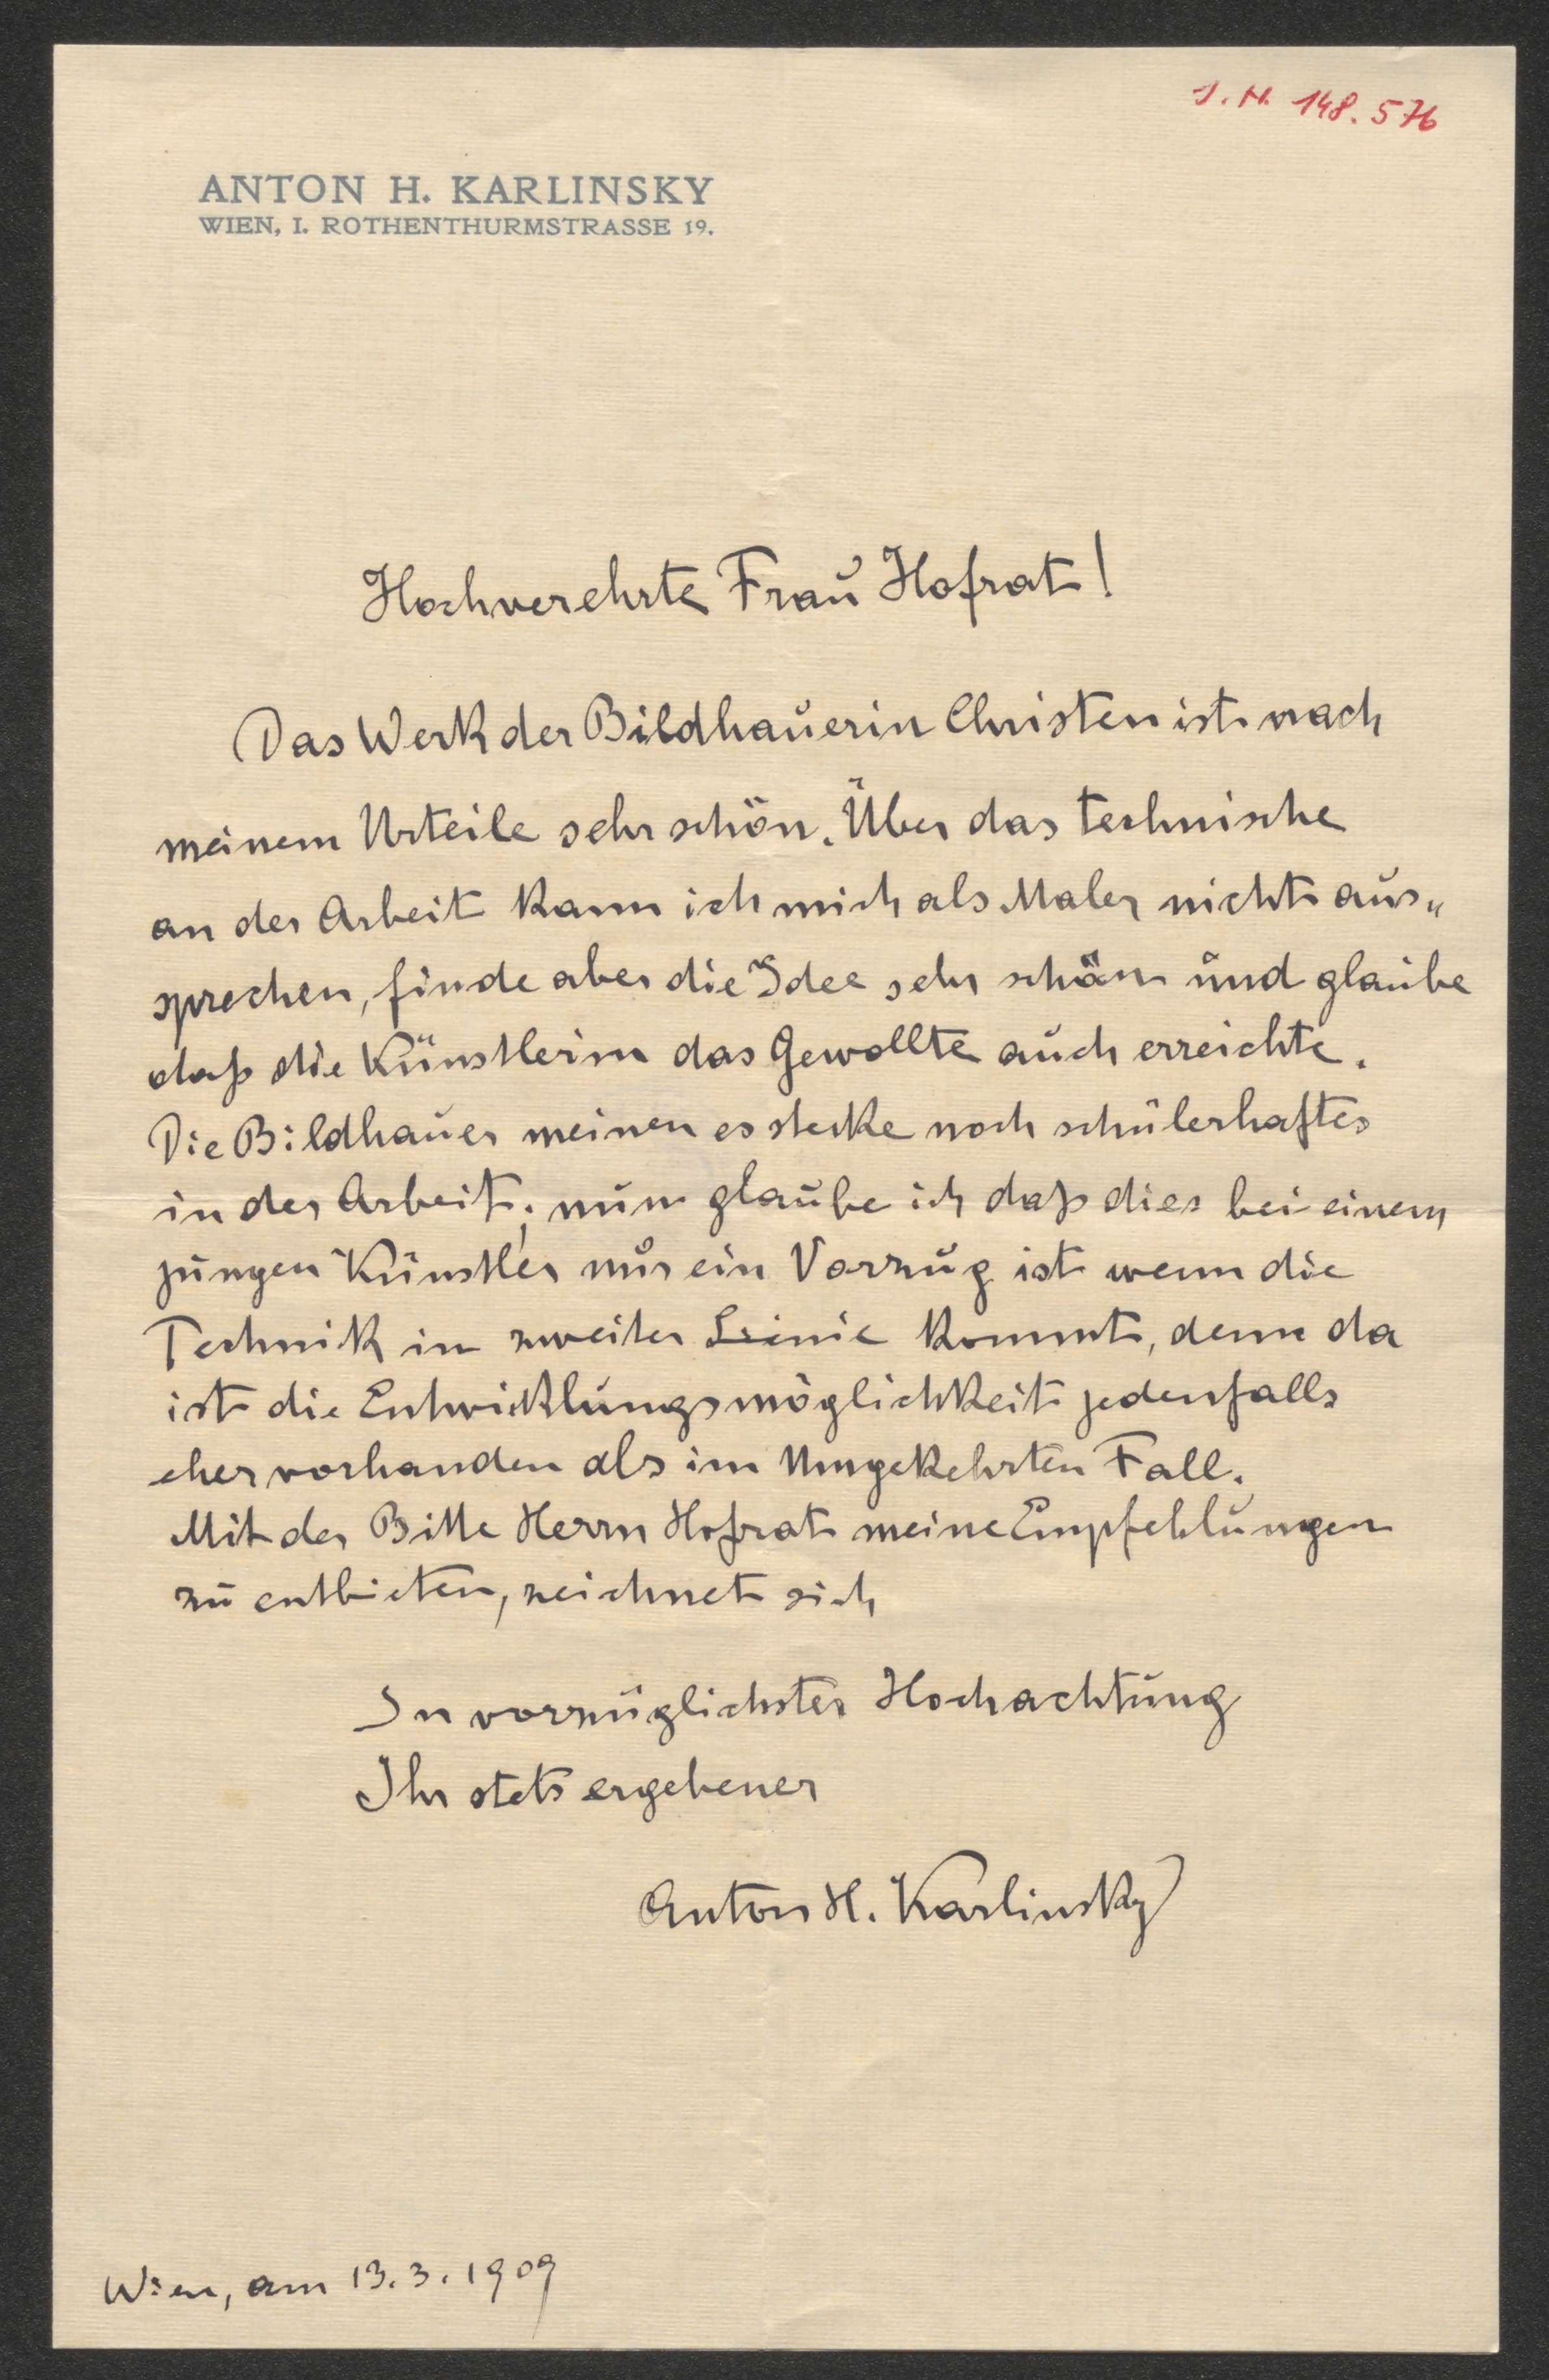 J. N. 148.576
ANTON H. KARLINSKY
WIEN, I. ROTHENTHURMSTRASSE 19.
Hochverehrte Frau Hofrat!
Das Werk der Bildhauerin Christen ist nach
meinem Urteile sehr schön. Über das technische
an der Arbeit kann ich mich als Maler nicht aus„
sprechen, finde aber die Idee sehr schön und glaube
daß die Künstlerin das Gewollte auch erreichte.
Die Bildhauer meinen es stecke noch schülerhaftes
in der Arbeit; nun glaube ich daß dies bei einem
jungen Künstler nur ein Vorzug ist wenn die
Technik in zweiter Linie kommt, denn da
ist die Entwicklungsmöglichkeit jedenfalls
eher vorhanden als im Umgekehrten Fall.
Mit der Bitte Herrn Hofrat meine Empfehlungen
zu entbieten, zeichnet sich
In vorzüglichster Hochachtung
Ihr stets ergebener
Anton H. Karlinsky
Wien, am 13.3.1909